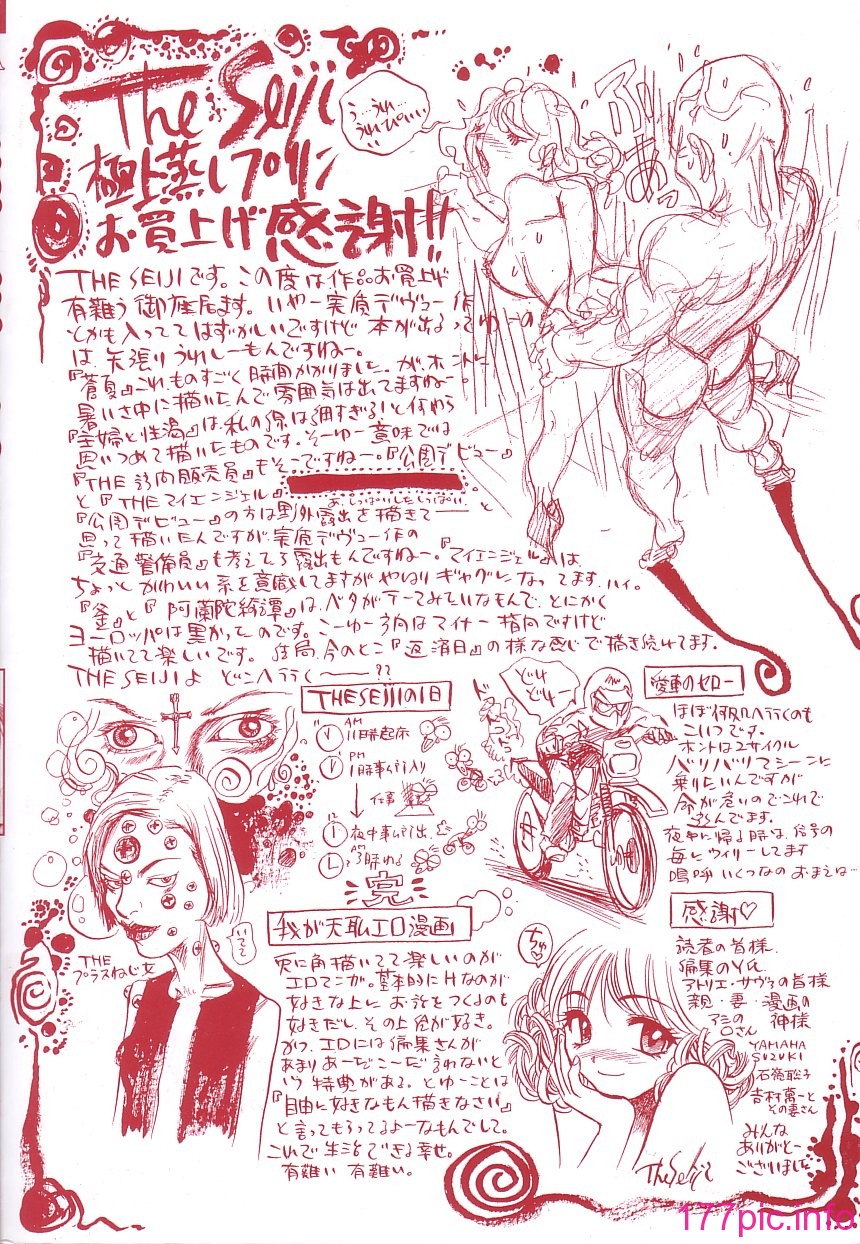 The Seiji
極上蒸しプリン
お買上げ感謝!!
う…うれ…
うれぴいい
ふぁあっ
THE SEIJIです。この度は作品お買上げ
有難う御座居ます。いやー実質デヴュー作
とかも入っててはずかしいですけど本が出るってゆーの
は矢張りうれしーもんですねー。
『蒼夏』これものすごく時間かかりました。が、ホントに
暑いさ中に描いたんで雰囲気は出てますねー。
『主婦と性渇』は、私の線は細すぎる!と何やら
思いつめて描いたものです。そーゆー意味では
『THE訪問販売員』もそーですねー。『公園デビュー』
と『THEマイエンジェル』
あ、しっぱいしたしっぱい
『公園デビュー』の方は野外露出を描きてーーと
思って描いたんですが、実質デヴュー作の
『交通警備員』も考えてみたら露出もんですねー。『マイエンジェル』は
ちょっとかわいい系を意識してますがやはりギャグになってます、ハイ。
『釜』と『阿蘭陀絵譚』は、ベタがテーマみたいなもんで、とにかく
ヨーロッパは黒かったのです。こーゆー方向はマイナー指向ですけど
描いてて楽しいです。結局、今のとこ『返済日』の様な感じで描き続けてます。
THE SEIJIよ どこへ行く――??
THE SEIJIの1日
AM
11時起床
PM
1時事ム所入り
仕事
夜中事ム所出る
AM
3時ねる
完
愛車のセロー
ほぼ何処へ行くのも
こいつです。
ホントは2サイクル
バリバリマシーンに
乗りたいんですが
命が危いのでこれで
遊んでます。
夜中に帰る時は、信号の
毎にウィリーしてます
嗚呼いくつなのおまえは…
THE
プラスねじ女
いてて
我が天恥エロ漫画
兎に角描いてて楽しいのが
エロマンガ。基本的にHなのが
好きな上に お話をつくるのも
好きだし、その上絵が好き。
かつ、エロには編集さんが
あまりあーだこーだ言わないと
いう特典がある。とゆーことは
『自由に好きなもん描きなさい』
と言ってもらってるよーなもんでして。
これで生活できる幸せ。
有難い 有難い。
感謝♡
ちゅ♡
読者の皆様
編集のY氏
アトリエ・サヴァの皆様
親・妻・漫画の
神様
アシの
口さん
YAMAHA
SUZUKI
石嶺聡子
吉村萬一と
その妻さん
みんな
ありがとー
ございました
The Seiji
177pic.info